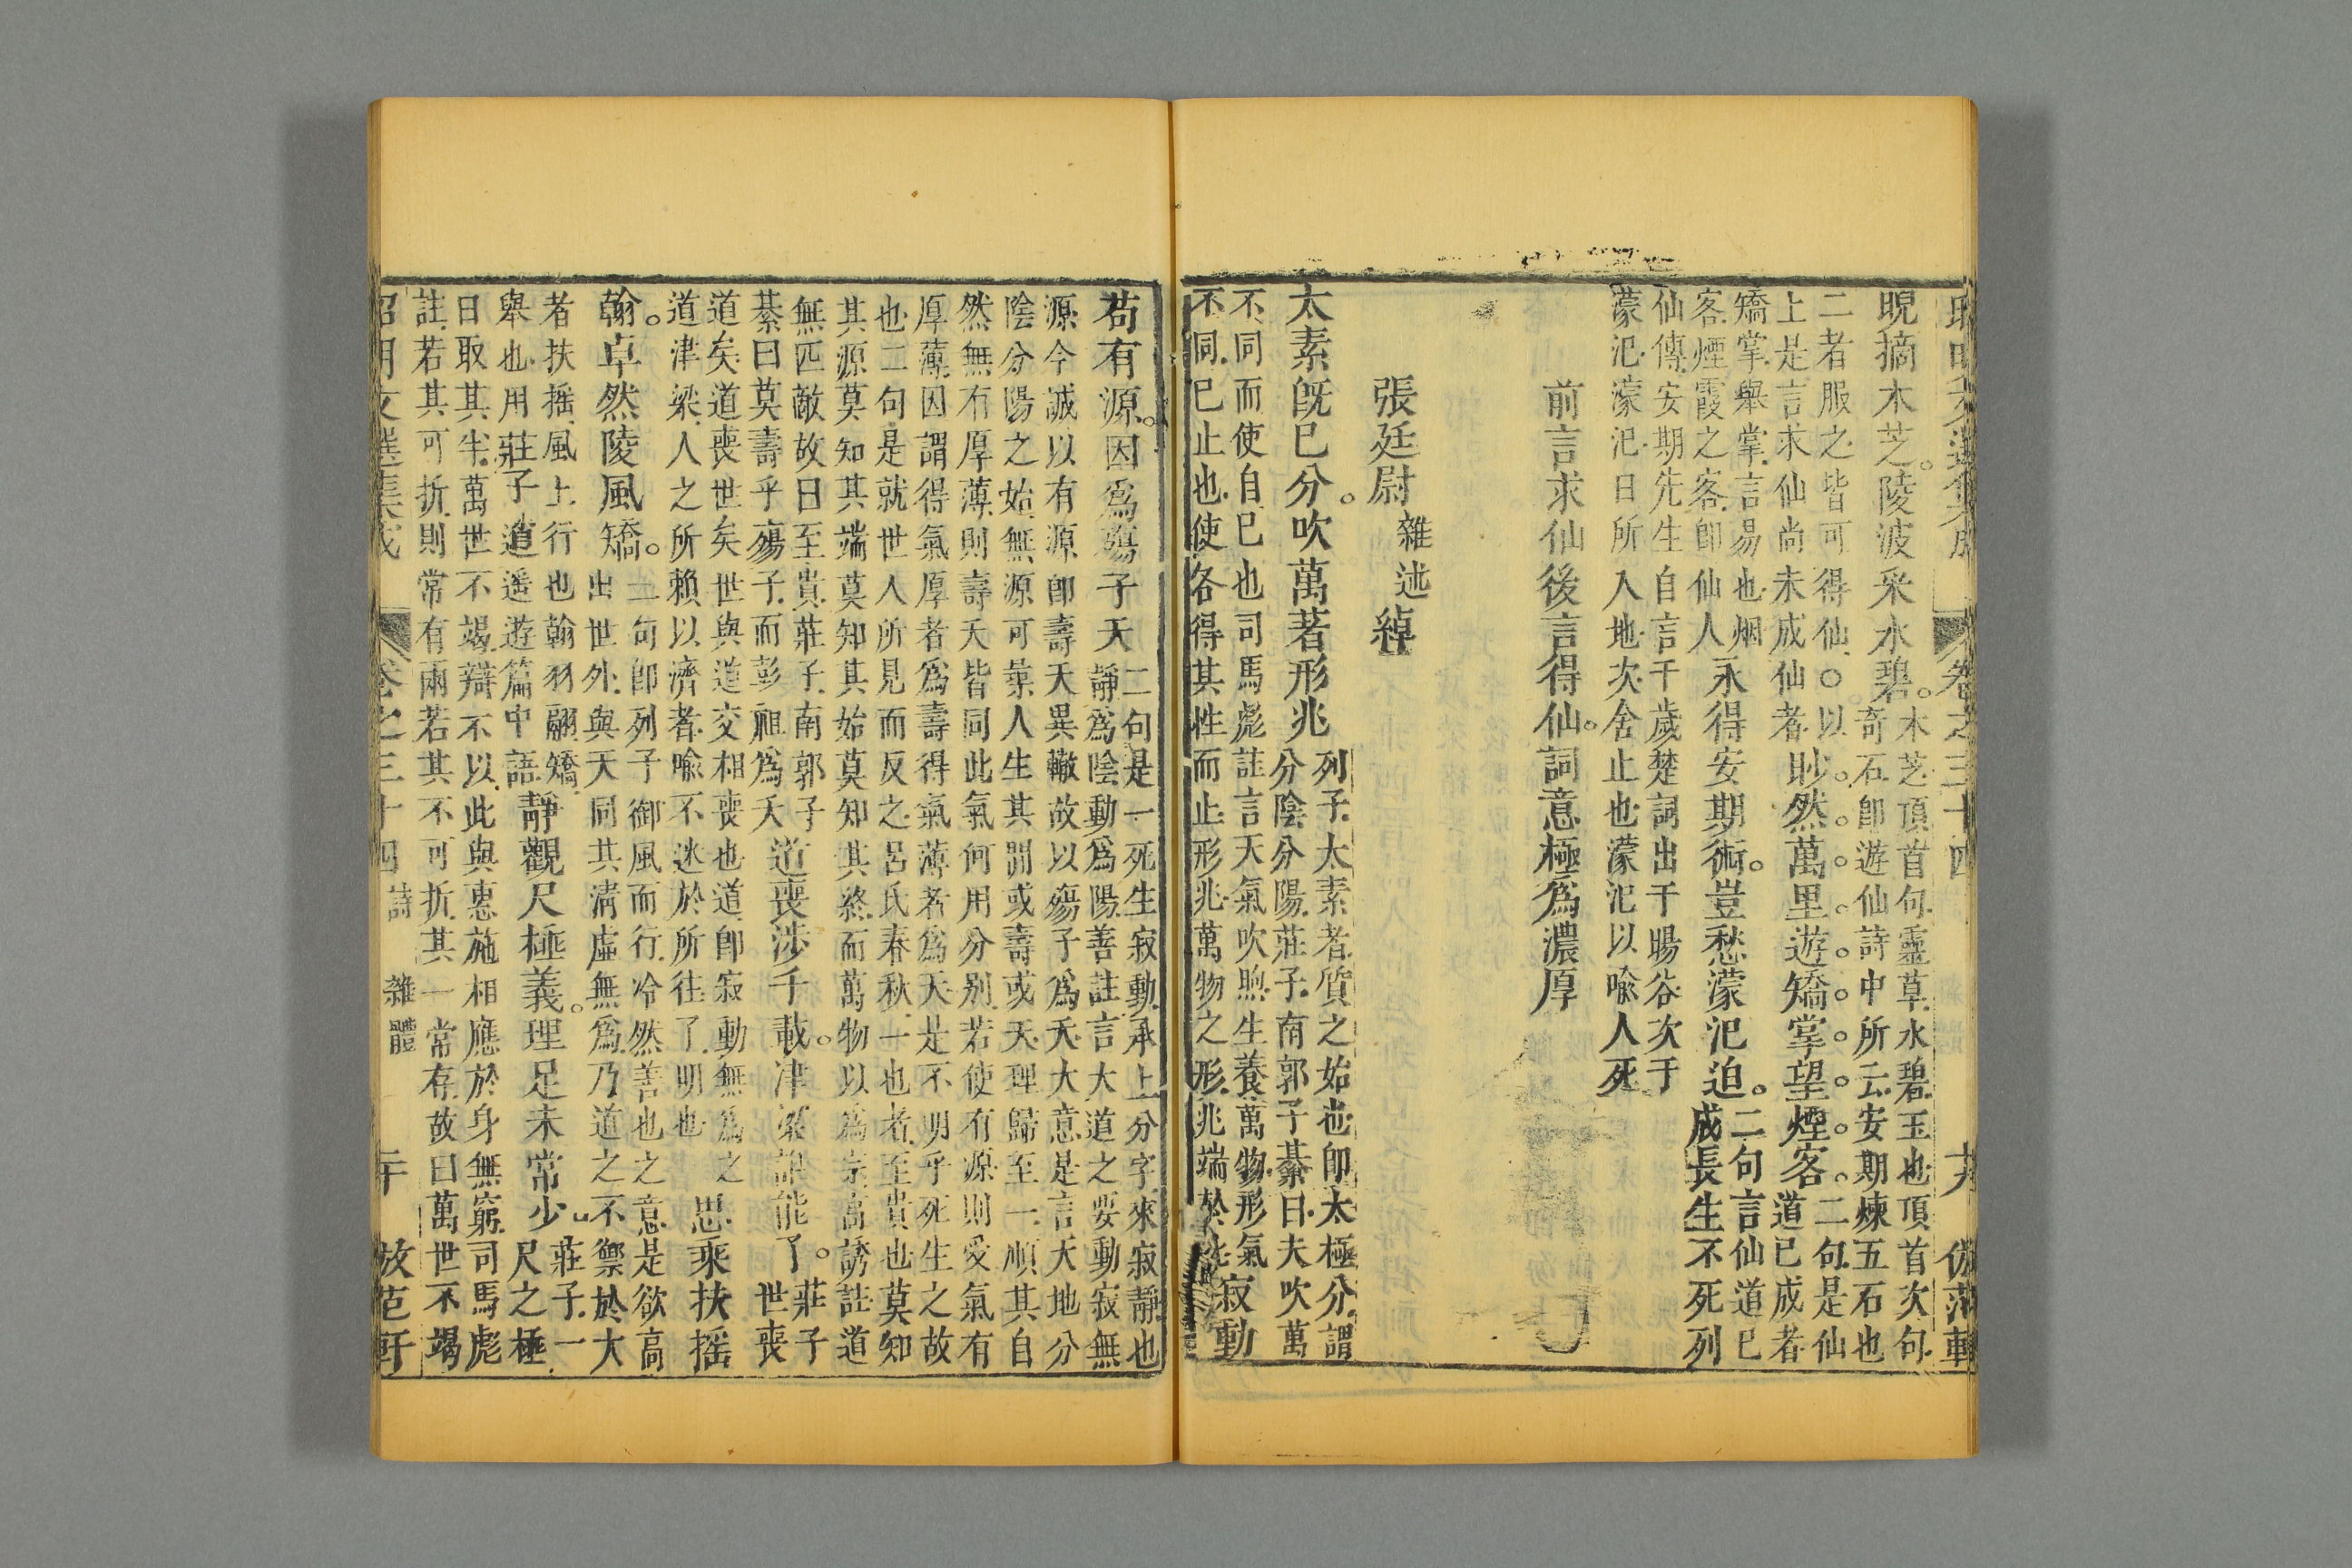 昭明文選集成　卷之三十四　十九　倣范軒
睨摘木芝。陵波采水碧。木芝頂首句靈草水碧玉也頂首次句
奇石卽遊仙詩中所云安期煉五石也
二者服之皆可得仙○以
上是言求仙尚未成仙者眇然萬里遊矯掌望煙客。二句是仙
道已成者
矯掌舉掌言易也烟
客煙霞之客卽仙人永得安期術。豈愁濛汜迫。二句言仙道已
成長生不死列
仙傳安期先生自言千歲楚詞出于暘谷次于
蒙汜濛汜日所入地次舍止也濛汜以喩人死
前言求仙後言得仙。詞意極爲濃厚
張廷尉雜述綽
太素旣已分。吹萬著形兆列子太素者質之始也卽太極分謂
分陰分陽莊子南郭子綦曰夫吹萬
不同而使自已也司馬彪註言天氣吹煦生養萬物形氣
不同已止也使各得其性而止形兆萬物之形兆端於此寂動
苟有源。因爲殤子夭二句是一死生寂動承上分字來寂靜也
靜爲陰動爲陽善註言大道之要動寂無
源今誠以有源卽壽夭異轍故以殤子爲夭大意是言天地分
陰分陽之始無源可尋人生其間或壽或夭理歸至一順其自
然無有厚薄則壽夭皆同此氣何用分別若使有源則受氣有
厚薄因謂得氣厚者爲壽得氣薄者爲夭是不明乎死生之故
也二句是就世人所見而反之呂氏春秋一也者至貴也莫知
其源莫知其端莫知其始莫知其終而萬物以爲宗高誘註道
無匹敵故曰至貴莊子南郭子
綦曰莫壽乎殤子而彭祖爲夭道喪涉千載。津梁誰能了。莊子
世喪
道矣道喪世矣世與道交相喪也道卽寂動無爲之
道津梁人之所賴以濟者喩不迷於所往了明也思乘扶摇
翰。卓然陵風矯。二句卽列子御風而行冷然善也之意是欲高
出世外與天同其清虛無爲乃道之不禦於大
者扶摇風上行也翰羽翮矯
舉也用莊子逍遥遊篇中語靜觀尺極義。理足未常少。莊子一
尺之極
日取其半萬世不竭辯不以此與惠施相應於身無窮司馬彪
註若其可折則常有兩若其不可折其一常存故曰萬世不竭
昭明文選集成　卷之三十四　詩　雜體　二十　倣范軒